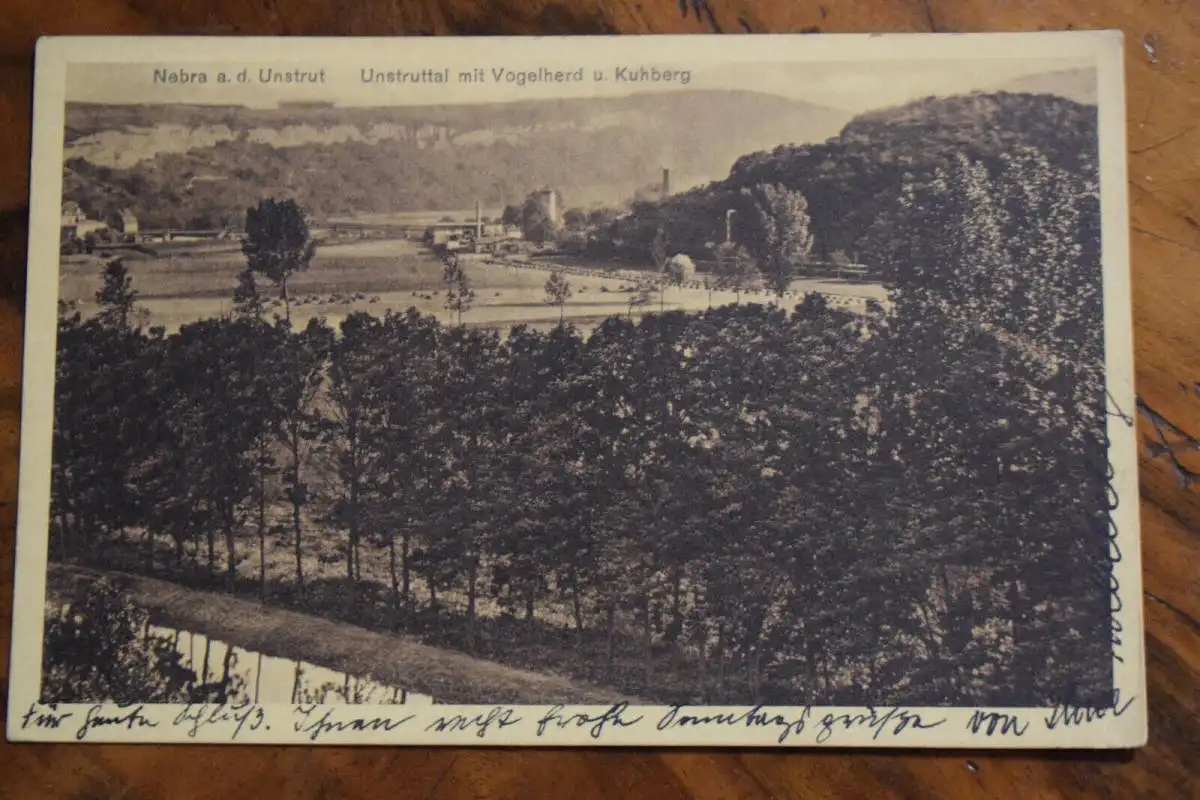 Nebra a. d. Unstrut Unstruttal mit Vogelherd u. Kuhberg
Für heute Schluß. Ihnen recht frohe Sonntagsgrüße von